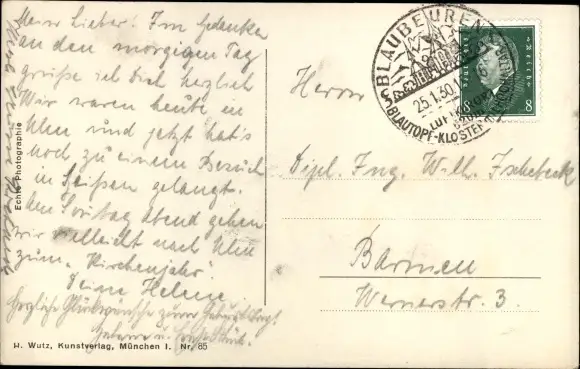 Mein Lieber! Im Gedanken
an den morgigen Tag
grüße ich Dich herzlich
Wir waren heute in
Ulm und jetzt hat's
noch zu einem Besuch
in Seißen gelangt.
Am Sonntag abend gehen
wir vielleicht nach Ulm
zum „Kirchenjahr".
Deine Helene
Herzliche Glückwünsche zum Geburtstag!
Echte Photographie
H. Wutz, Kunstverlag, München I. Nr. 85
BLAUBEUREN
25.1.30.
BLAUTOPF-KLOSTER
8 8
Herrn
Dipl. Ing. Wilh. Tschebeck
Barmen
Wernerstr. 3.